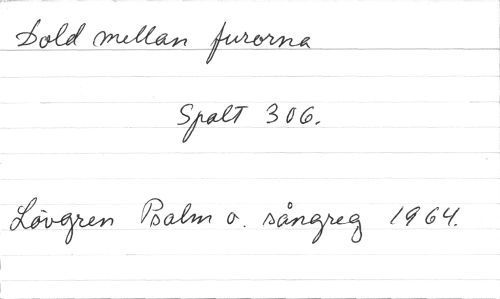 Dold mellan furorna
Spalt 306.
Lövgren Psalm o. sångreg 1964.